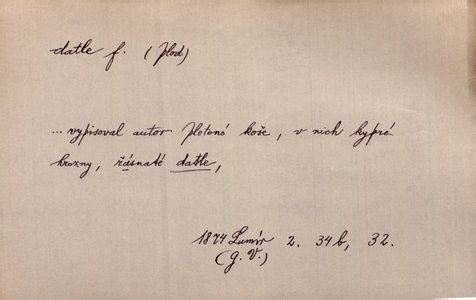 datle f. (plod)
... vypisoval autor pletené koše, v nich kypré
hrozny, řásnaté datle,
1874 Lumír 2. 34b, 32.
(J. V.)